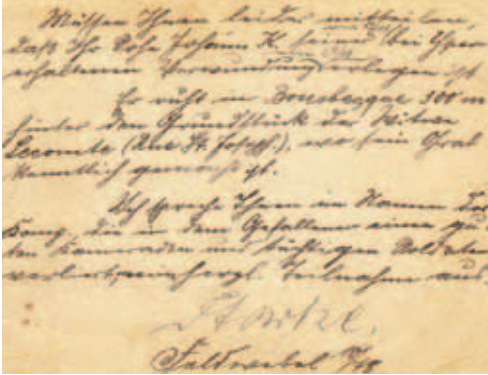 Müssen Ihnen leider mitteilen,
daß Ihr Sohn Johann K. seiner bei Ypern
erhaltenen Verwundung erlegen ist
Er ruht in Bousbecque 300 m
hinter dem Grundstück der Witwe
Lecomte (Rue St. Joseph), wo sein Grab
kenntlich gemacht ist.
Ich spreche Ihnen im Namen der
Komp., die in dem Gefallenen einen gu-
ten Kameraden und tüchtigen Soldaten
verliert, mein herzl. Teilnahme aus.
Feldwebel